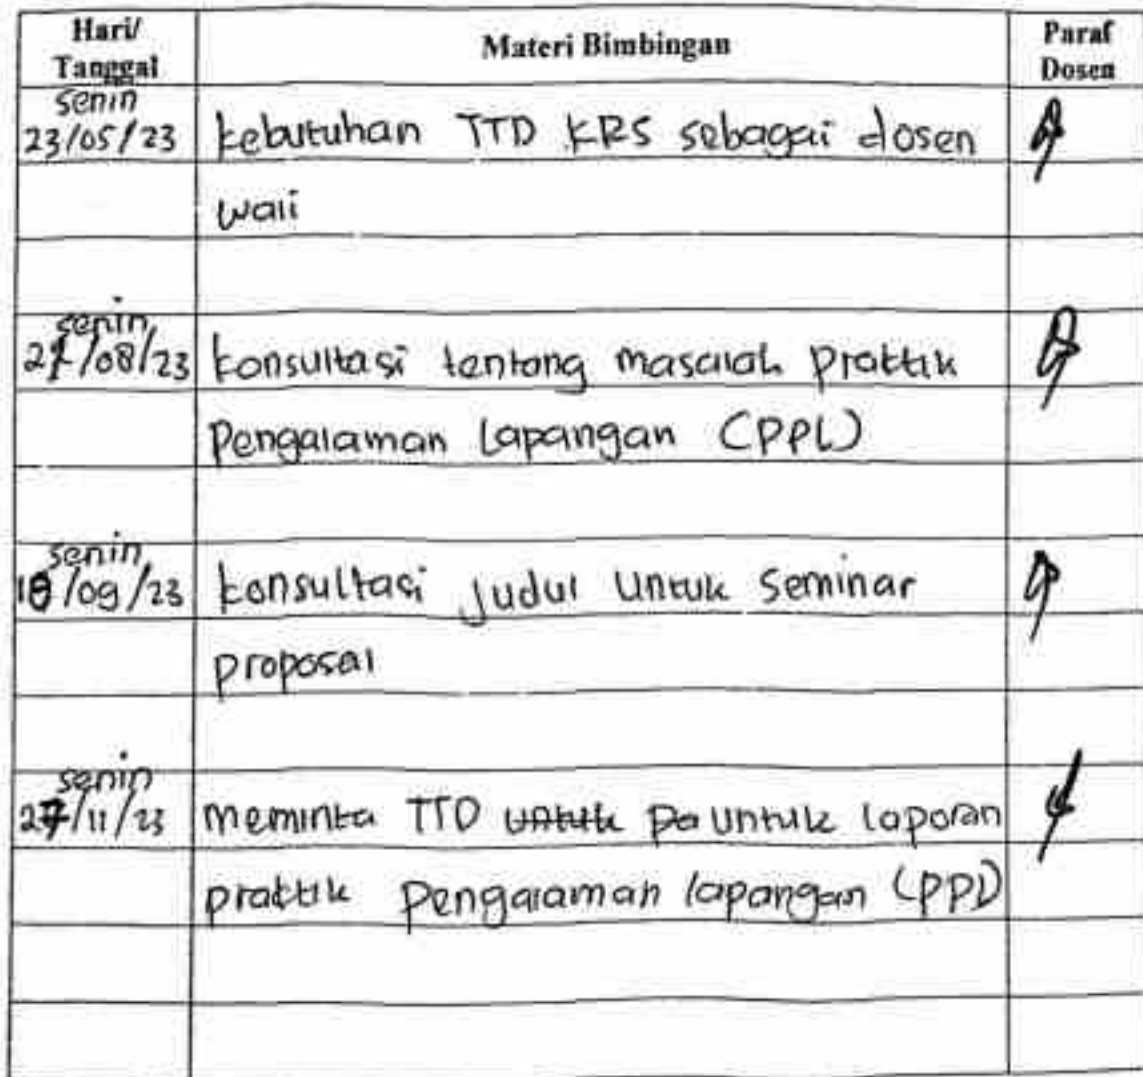 Hari/ Materi Bimbingan Paraf
Tanggal Dosen
senin
23/05/23 kebutuhan TTD KRS sebagai dosen
wali
senin
27/08/23 konsultasi tentang masalah praktik
Pengalaman Lapangan (PPL)
senin
18/09/23 konsultasi Judul Untuk Seminar
proposal
senin
27/11/23 meminta TTD untuk pa untuk laporan
praktik Pengalaman lapangan (PPL)